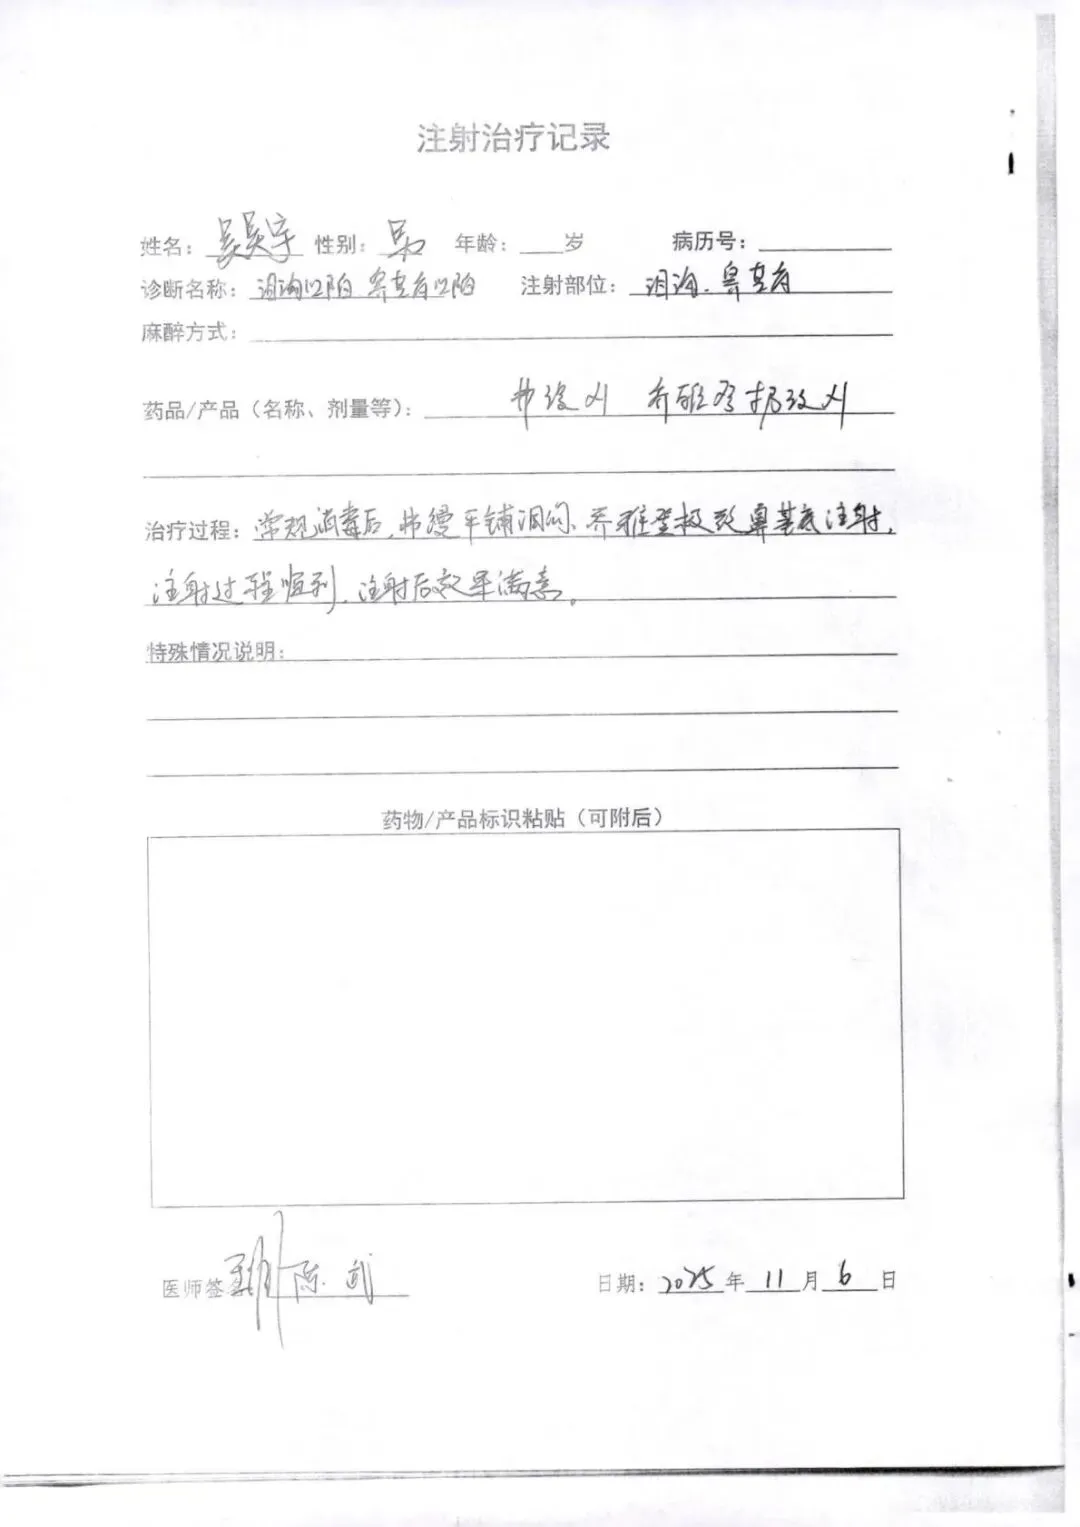 注射治疗记录
姓名：吴昊宇 性别：男 年龄：___岁 病历号：
诊断名称：泪沟凹陷 鼻基底凹陷 注射部位：泪沟、鼻基底
麻醉方式：
药品/产品（名称、剂量等）：弗缦x1 乔雅登极致x1
治疗过程：常规消毒后，弗缦平铺泪沟、乔雅登极致鼻基底注射，
注射过程顺利，注射后效果满意。
特殊情况说明：
药物/产品标识粘贴（可附后）
医师签名 陈 武 日期：2025年11月6日